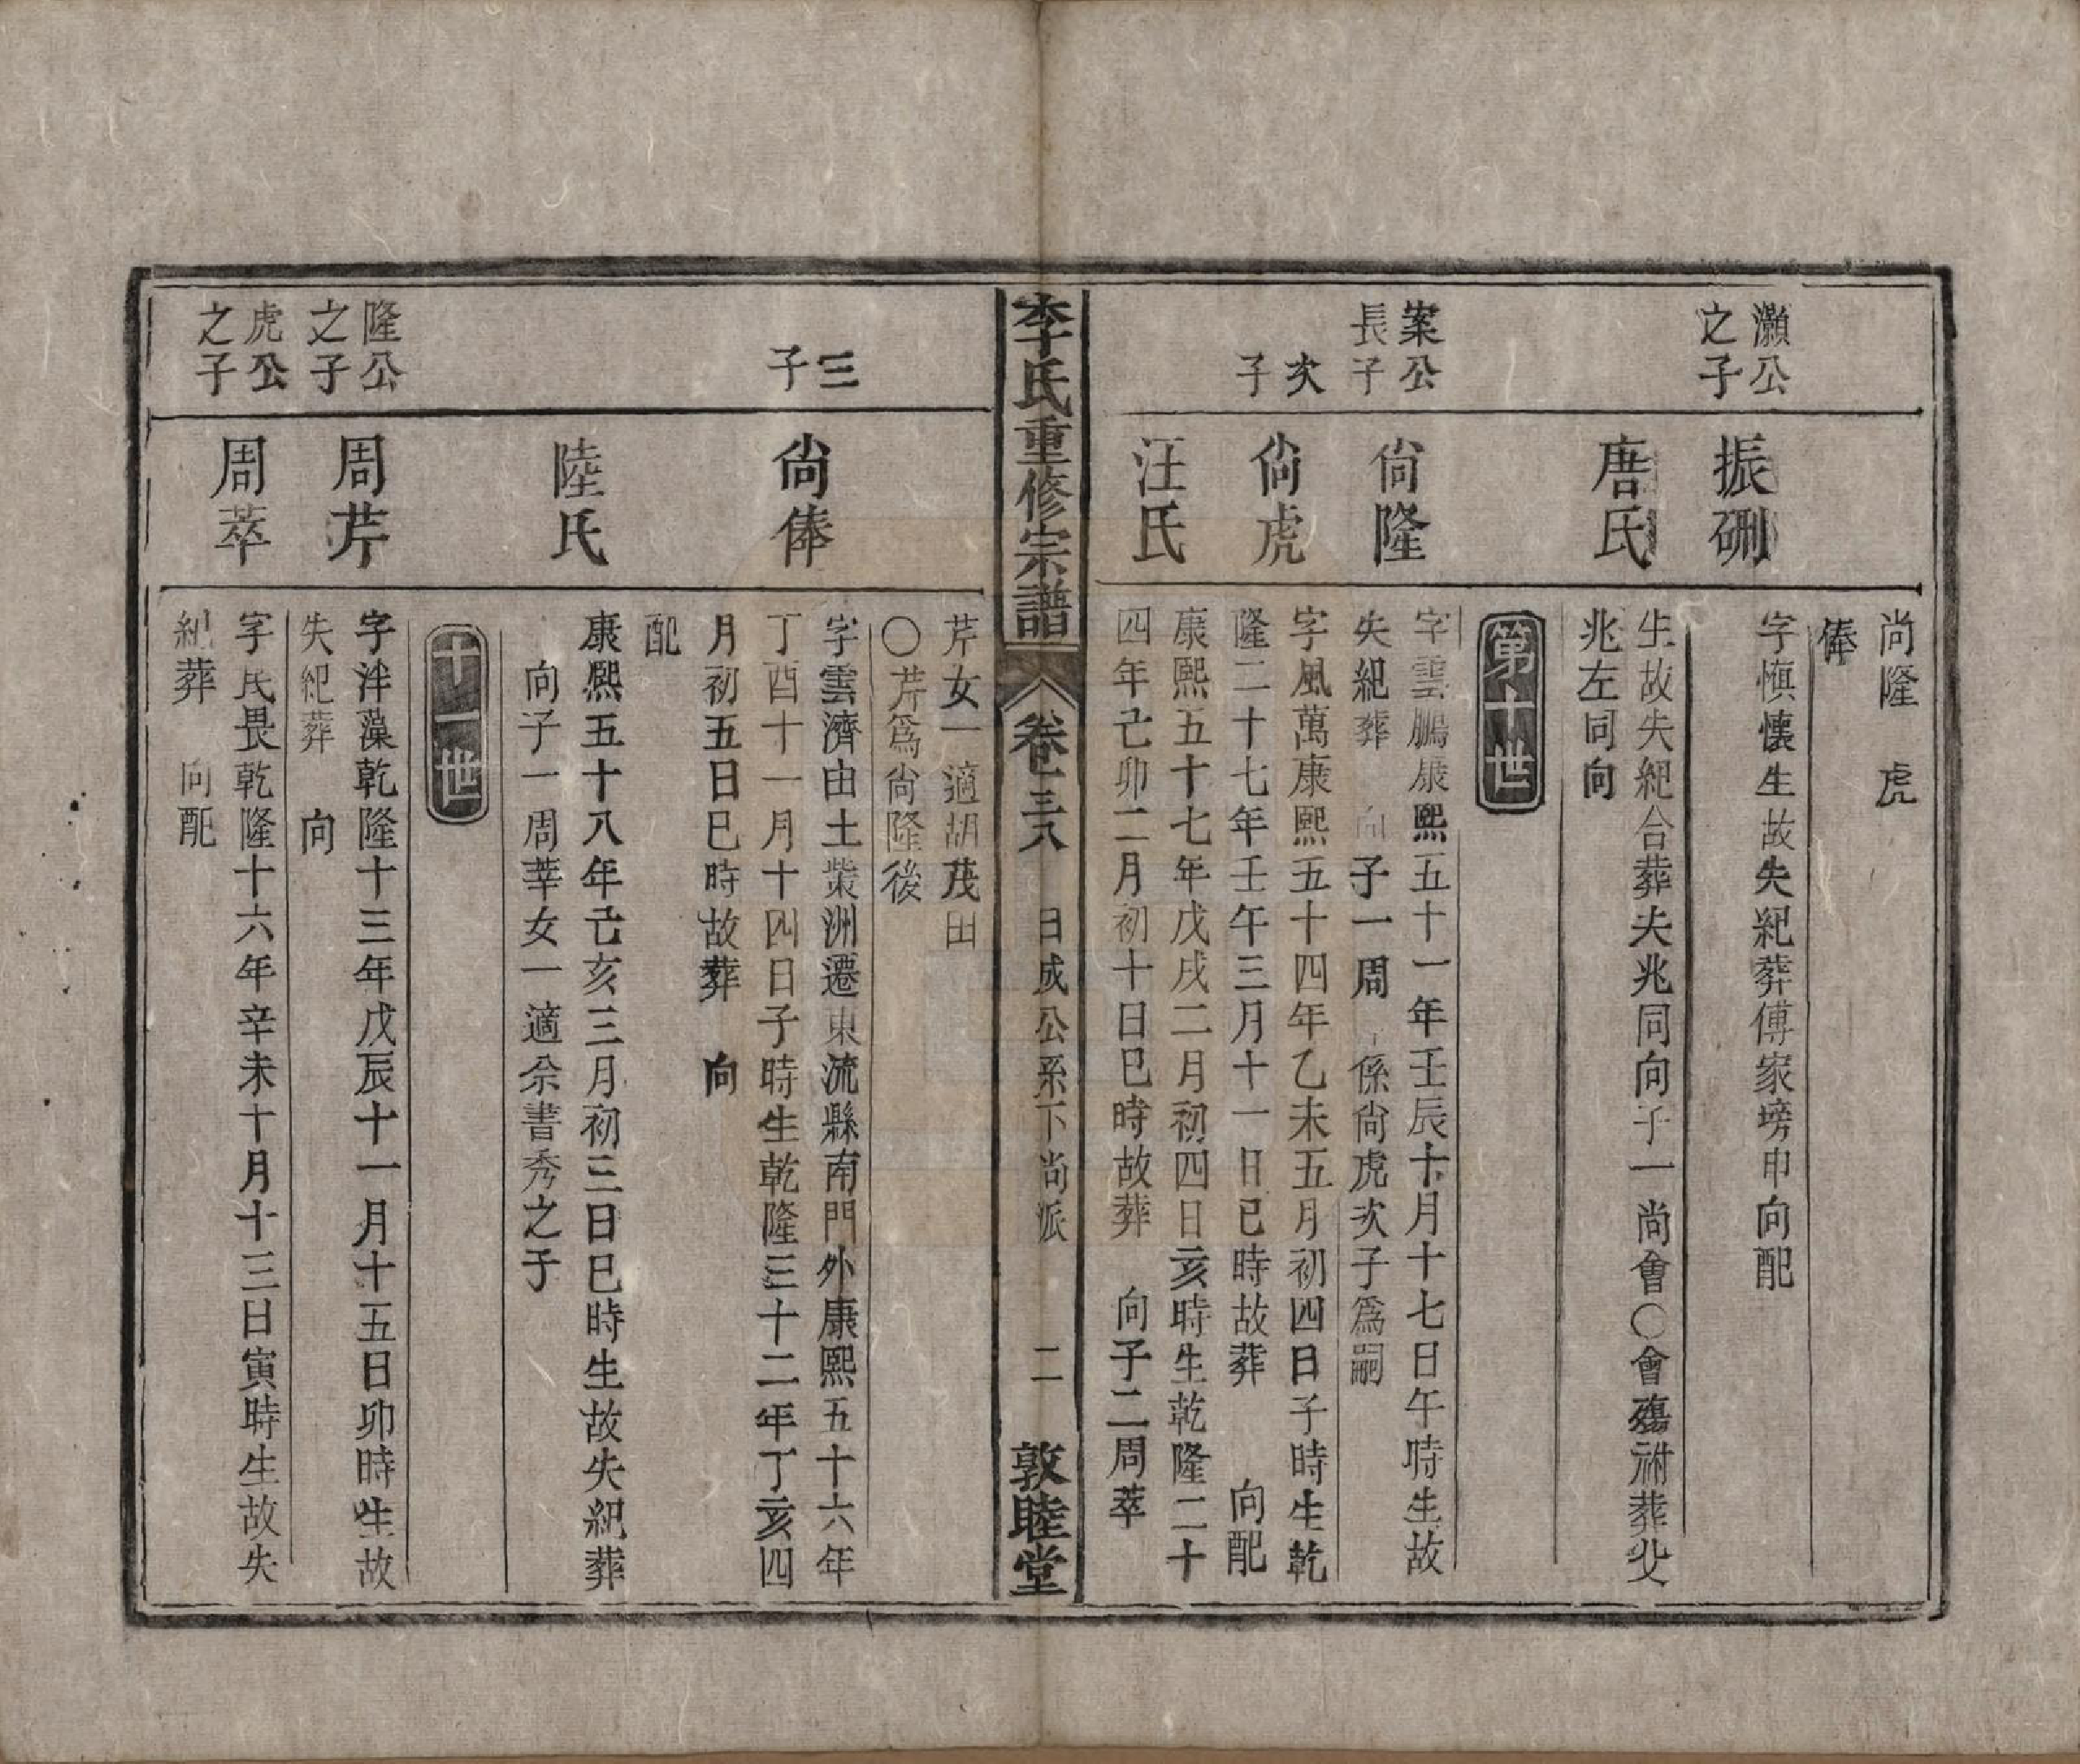 尚隆　虎
俸
灝公
之子
振硎
字愼懐生故失紀葬傅家塝申向配
唐氏
生故失紀合葬夫兆同向子一尚會○會殤祔葬父
兆左同向
第十世
案公
長子
尚隆
字雲鵬康熙五十一年壬辰十月十七日午時生故
失紀葬　向子一周　係尚虎次子爲嗣
次
子
尚虎
字風萬康熙五十四年乙未五月初四日子時生乾
隆二十七年壬午三月十一日巳時故葬　向配
汪氏
康熙五十七年戊戌二月初四日亥時生乾隆二十
四年己卯二月初十日巳時故葬　向子二周萃
李氏重修宗譜　卷三八　日成公系下尚派　二　敦睦堂
芹女一適胡茂田
○芹爲尚隆後
三
子
尚俸
字雲濟由土棠洲遷東流縣南門外康熙五十六年
丁酉十一月十四日子時生乾隆三十二年丁亥四
月初五日巳時故葬　向
配
陸氏
康熙五十八年己亥三月初三日巳時生故失紀葬
向子一周莘女一適余書秀之子
十一世
隆公
之子
周芹
字泮藻乾隆十三年戊辰十一月十五日卯時生故
失紀葬　向
虎公
之子
周萃
字民畏乾隆十六年辛未十月十三日寅時生故失
紀葬　向配